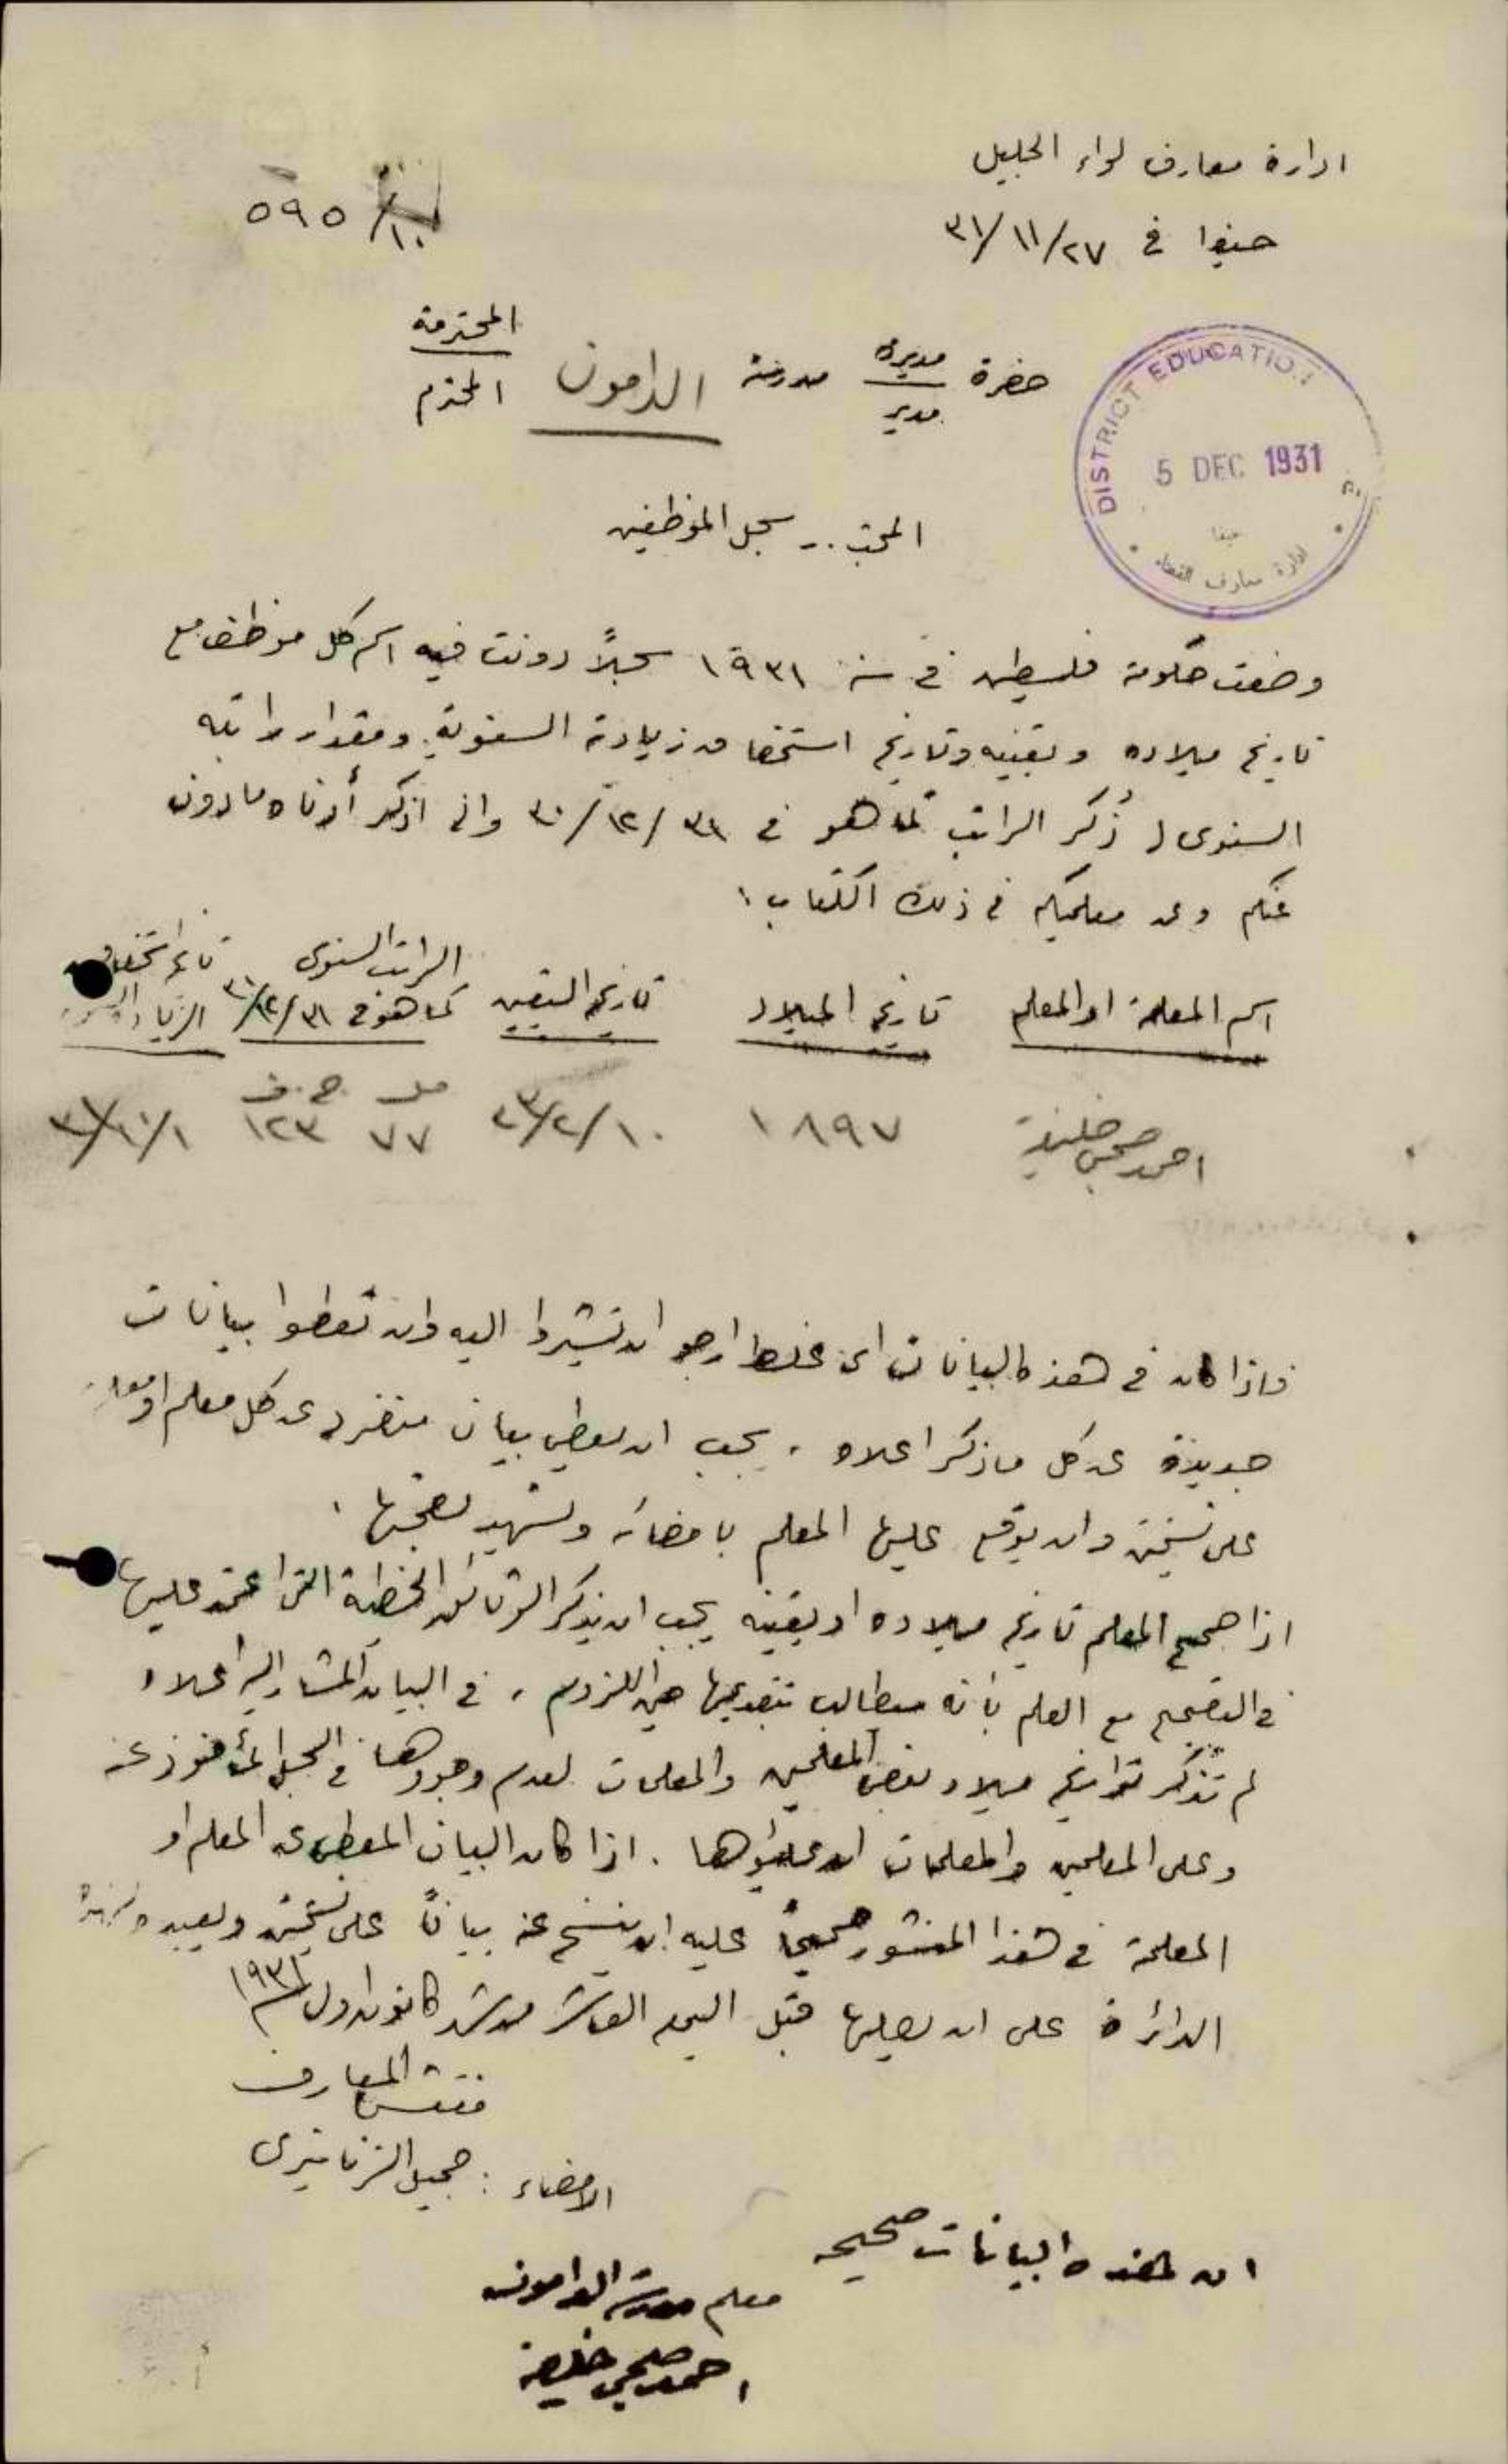 ادارة معارف لواء الجليل
حيفا في ٣١/١١/٢٧
١٠/ ٥٩٥
حضرة مديرة مدرسة الدامون المحترمة
مدير المحترم
DISTRICT EDUCATION
5 DEC 1931
حيفا
ادارة معارف القضاء
المبحث .. سجل الموظفين
وضعت حكومة فلسطين في سنة ١٩٣١ سجلاً دونت فيه اسم كل موظف مع
تاريخ ميلاده وتعيينه وتاريخ استحقاقه زيادته السنوية ومقدار راتبه
السنوي و ذُكر الراتب كما هو في ٣١/١٢/٣٠ واني اذكر أدناه ما دون
عنكم وعن معلميكم في ذلك الكتاب :
اسم المعلمة او المعلم تاريخ الميلاد تاريخ التعيين الراتب السنوي كما هو في ٣١/١٢/ تاريخ استحقاق الزيادة
مل ج.ف
احمد صبحي خليفة ١٨٩٧ ٢٣/٢/١٠ ٧٧ ١٢٣ ٣١/١٠/١
فاذا كان في هذه البيانات اي غلط ارجو ان تشيروا اليه وان تعطوا بيانات
جديدة عن كل ما ذكر اعلاه . يجب ان يعطى بيان منفرد عن كل معلم او معلمة
على نسختين وان يوقع عليها المعلم بامضائه وتشهد بصحتها .
اذا صحح المعلم تاريخ ميلاده او تعيينه يجب ان يذكر الوثائق الخطية التي اعتمد عليها
في التصحيح مع العلم بأنه سيطالب بتقديمها حين اللزوم . في البيان المشار اليه اعلاه
لم تذكر تواريخ ميلاد بعض المعلمين والمعلمات لعدم وجودها في السجل المأخوذ عنه
وعلى المعلمين والمعلمات ان يملؤوها . اذا كان البيان المعطى عن المعلم او
المعلمة في هذا المنشور صحيحاً عليه ان ينسخ عنه بياناً على نسختين ويعيده لهذه
الدائرة على ان يصلها قبل اليوم العاشر من شهر كانون اول سنة ١٩٣١
مفتش المعارف
الامضاء : جميل الزناتيري
ان هذه البيانات صحيحه
معلم مدرسة الدامون
احمد صبحي خليفة